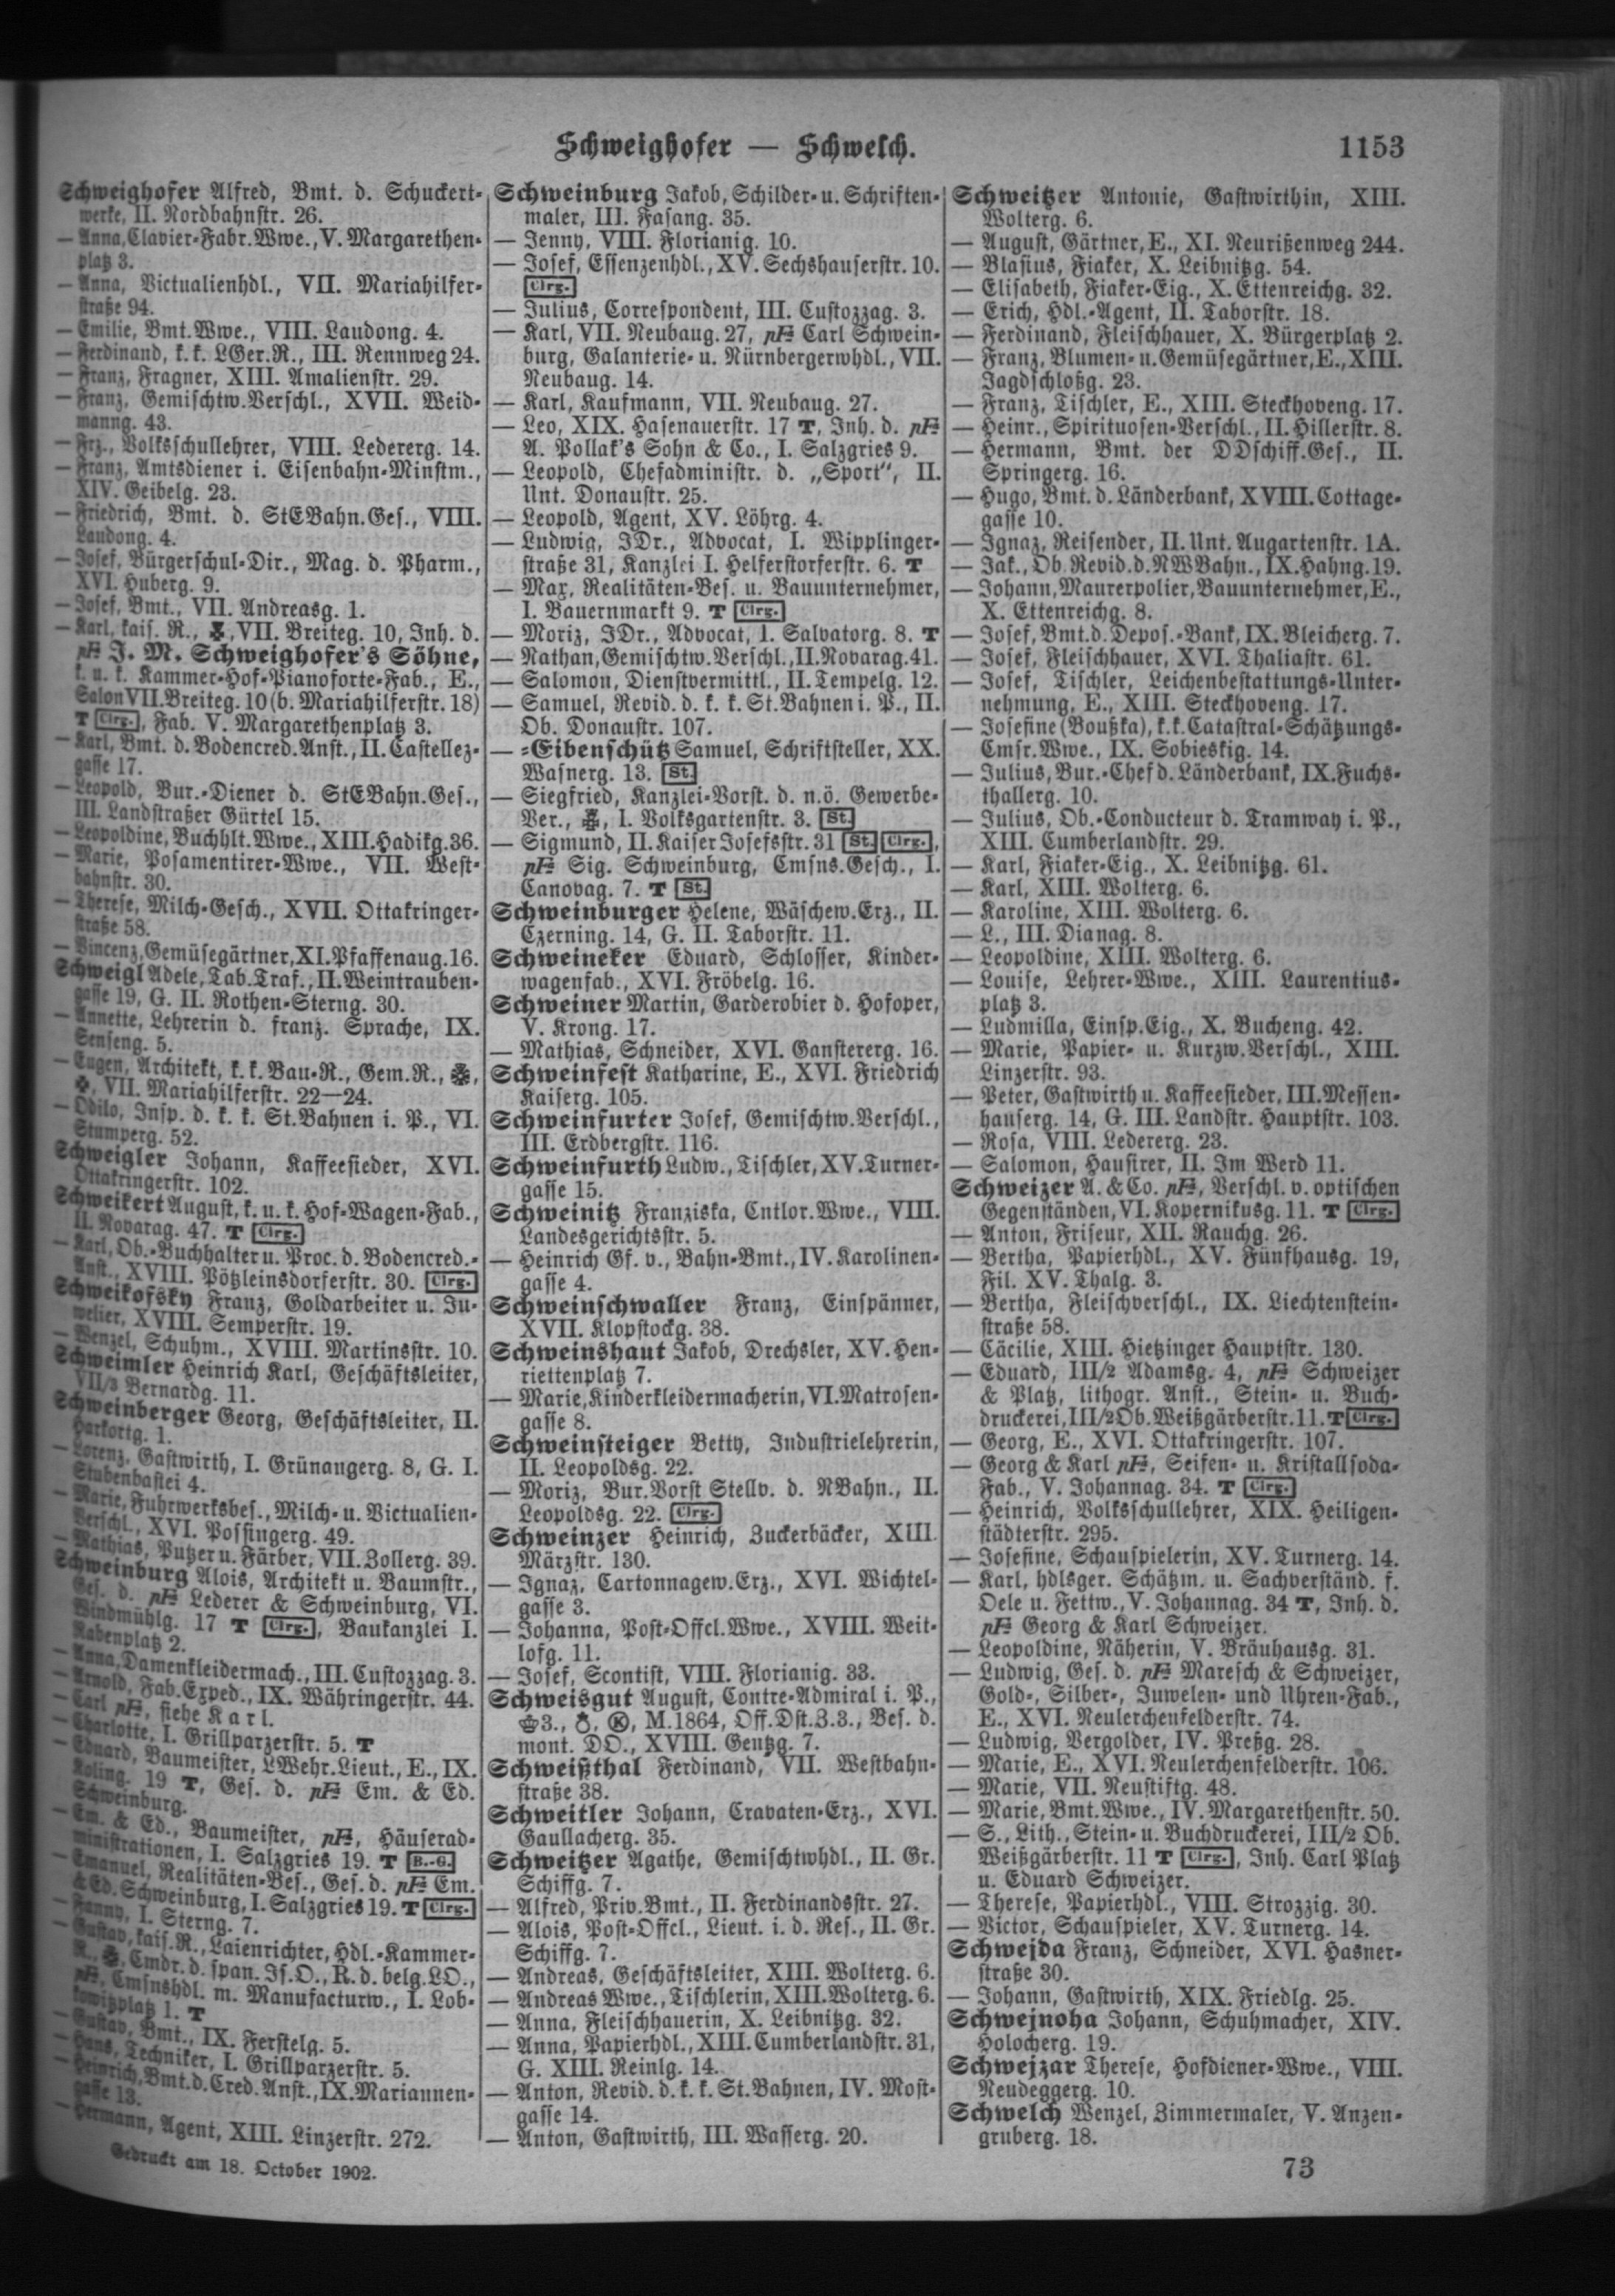 Schweighofer — Schwelch.
1153
Schweighofer Alfred, Bmt. d. Schuckert-
werke, II. Nordbahnstr. 26.
— Anna, Clavier-Fabr.Wwe., V. Margarethen-
platz 3.
— Anna, Victualienhdl., VII. Mariahilfer-
straße 94.
— Emilie, Bmt.Wwe., VIII. Laudong. 4.
— Ferdinand, k. k. LGer.R., III. Rennweg 24.
— Franz, Fragner, XIII. Amalienstr. 29.
— Franz, Gemischtw.Verschl., XVII. Weid-
manng. 43.
— Frz., Volksschullehrer, VIII. Ledererg. 14.
— Franz, Amtsdiener i. Eisenbahn-Minstm.,
XIV. Geibelg. 23.
— Friedrich, Bmt. d. StEBahn.Ges., VIII.
Laudong. 4.
— Josef, Bürgerschul-Dir., Mag. d. Pharm.,
XVI. Huberg. 9.
— Josef, Bmt., VII. Andreasg. 1.
— Karl, kais. R., VII. Breiteg. 10, Inh. d.
pF J. M. Schweighofer's Söhne,
k. u. k. Kammer-Hof-Pianoforte-Fab., E.,
Salon VII. Breiteg. 10 (b. Mariahilferstr. 18)
T Clrg., Fab. V. Margarethenplatz 3.
— Karl, Bmt. d. Bodencred.Anst., II. Castellez-
gasse 17.
— Leopold, Bur.-Diener d. StEBahn.Ges.,
III. Landstraßer Gürtel 15.
— Leopoldine, Buchhlt.Wwe., XIII. Hadikg. 36.
— Marie, Posamentirer-Wwe., VII. West-
bahnstr. 30.
— Therese, Milch-Gesch., XVII. Ottakringer-
straße 58.
— Vincenz, Gemüsegärtner, XI. Pfaffenaug. 16.
Schweigl Adele, Tab.Traf., II. Weintrauben-
gasse 19, G. II. Rothen-Sterng. 30.
— Annette, Lehrerin d. franz. Sprache, IX.
Senseng. 5.
— Eugen, Architekt, k. k. Bau-R., Gem.R.,
VII. Mariahilferstr. 22—24.
— Odilo, Insp. d. k. k. St.Bahnen i. P., VI.
Stumperg. 52.
Schweigler Johann, Kaffeesieder, XVI.
Ottakringerstr. 102.
Schweikert August, k. u. k. Hof-Wagen-Fab.,
II. Novarag. 47. T Clrg.
— Karl, Ob.-Buchhalter u. Proc. d. Bodencred.-
Anst., XVIII. Pötzleinsdorferstr. 30. Clrg.
Schweikofsky Franz, Goldarbeiter u. Ju-
welier, XVIII. Semperstr. 19.
— Wenzel, Schuhm., XVIII. Martinsstr. 10.
Schweimler Heinrich Karl, Geschäftsleiter,
VII/3 Bernardg. 11.
Schweinberger Georg, Geschäftsleiter, II.
Harkortg. 1.
— Lorenz, Gastwirth, I. Grünangerg. 8, G. I.
Stubenbastei 4.
— Marie, Fuhrwerksbes., Milch- u. Victualien-
Verschl., XVI. Possingerg. 49.
— Mathias, Putzer u. Färber, VII. Zollerg. 39.
Schweinburg Alois, Architekt u. Baumstr.,
Ges. d. pF Lederer & Schweinburg, VI.
Windmühlg. 17 T Clrg., Baukanzlei I.
Rabenplatz 2.
— Anna, Damenkleidermach., III. Custozzag. 3.
— Arnold, Fab.Exped., IX. Währingerstr. 44.
— Carl pF, siehe Karl.
— Charlotte, I. Grillparzerstr. 5. T
— Eduard, Baumeister, LWehr.Lieut., E., IX.
Koling. 19 T, Ges. d. pF Em. & Ed.
Schweinburg.
— Em. & Ed., Baumeister, pF, Häuserad-
ministrationen, I. Salzgries 19. T B.-G.
— Emanuel, Realitäten-Bes., Ges. d. pF Em.
& Ed. Schweinburg, I. Salzgries 19. T Clrg.
— Fanny, I. Sterng. 7.
— Gustav, kais. R., Laienrichter, Hdl.-Kammer-
R., Cmdr. d. span. Is.O., R. d. belg. LO.,
pF, Cmsnshdl. m. Manufacturw., I. Lob-
kowitzplatz 1. T
— Gustav, Bmt., IX. Ferstelg. 5.
— Hans, Techniker, I. Grillparzerstr. 5.
— Heinrich, Bmt. d. Cred.Anst., IX. Mariannen-
gasse 13.
— Hermann, Agent, XIII. Linzerstr. 272.
Gedruckt am 18. October 1902.
Schweinburg Jakob, Schilder- u. Schriften-
maler, III. Fasang. 35.
— Jenny, VIII. Florianig. 10.
— Josef, Essenzenhdl., XV. Sechshauserstr. 10.
Clrg.
— Julius, Correspondent, III. Custozzag. 3.
— Karl, VII. Neubaug. 27, pF Carl Schwein-
burg, Galanterie- u. Nürnbergerwhdl., VII.
Neubaug. 14.
— Karl, Kaufmann, VII. Neubaug. 27.
— Leo, XIX. Hasenauerstr. 17 T, Inh. d. pF
A. Pollak's Sohn & Co., I. Salzgries 9.
— Leopold, Chefadministr. d. „Sport“, II.
Unt. Donaustr. 25.
— Leopold, Agent, XV. Löhrg. 4.
— Ludwig, JDr., Advocat, I. Wipplinger-
straße 31, Kanzlei I. Helferstorferstr. 6. T
— Max, Realitäten-Bes. u. Bauunternehmer,
I. Bauernmarkt 9. T Clrg.
— Moriz, JDr., Advocat, I. Salvatorg. 8. T
— Nathan, Gemischtw.Verschl., II. Novarag. 41.
— Salomon, Dienstvermittl., II. Tempelg. 12.
— Samuel, Revid. d. k. k. St.Bahnen i. P., II.
Ob. Donaustr. 107.
— -Eibenschütz Samuel, Schriftsteller, XX.
Wasnerg. 13. St.
— Siegfried, Kanzlei-Vorst. d. n.ö. Gewerbe-
Ver., I. Volksgartenstr. 3. St.
— Sigmund, II. Kaiser Josefsstr. 31 St. Clrg.,
pF Sig. Schweinburg, Cmsns.Gesch., I.
Canovag. 7. T St.
Schweinburger Helene, Wäschew.Erz., II.
Czerning. 14, G. II. Taborstr. 11.
Schweineker Eduard, Schlosser, Kinder-
wagenfab., XVI. Fröbelg. 16.
Schweiner Martin, Garderobier d. Hofoper,
V. Krong. 17.
— Mathias, Schneider, XVI. Ganstererg. 16.
Schweinfest Katharine, E., XVI. Friedrich
Kaiserg. 105.
Schweinfurter Josef, Gemischtw.Verschl.,
III. Erdbergstr. 116.
Schweinfurth Ludw., Tischler, XV. Turner-
gasse 15.
Schweinitz Franziska, Cntlor.Wwe., VIII.
Landesgerichtsstr. 5.
— Heinrich Gf. v., Bahn-Bmt., IV. Karolinen-
gasse 4.
Schweinschwaller Franz, Einspänner,
XVII. Klopstockg. 38.
Schweinshaut Jakob, Drechsler, XV. Hen-
riettenplatz 7.
— Marie, Kinderkleidermacherin, VI. Matrosen-
gasse 8.
Schweinsteiger Betty, Industrielehrerin,
II. Leopoldsg. 22.
— Moriz, Bur.Vorst Stellv. d. NBahn., II.
Leopoldsg. 22. Clrg.
Schweinzer Heinrich, Zuckerbäcker, XIII.
Märzstr. 130.
— Ignaz, Cartonnagew.Erz., XVI. Wichtel-
gasse 3.
— Johanna, Post-Offcl.Wwe., XVIII. Weit-
lofg. 11.
— Josef, Scontist, VIII. Florianig. 33.
Schweisgut August, Contre-Admiral i. P.,
3., K, M.1864, Off.Dst.Z.3., Bes. d.
mont. DO., XVIII. Gentzg. 7.
Schweißthal Ferdinand, VII. Westbahn-
straße 38.
Schweitler Johann, Cravaten-Erz., XVI.
Gaullacherg. 35.
Schweitzer Agathe, Gemischtwhdl., II. Gr.
Schiffg. 7.
— Alfred, Priv.Bmt., II. Ferdinandsstr. 27.
— Alois, Post-Offcl., Lieut. i. d. Res., II. Gr.
Schiffg. 7.
— Andreas, Geschäftsleiter, XIII. Wolterg. 6.
— Andreas Wwe., Tischlerin, XIII. Wolterg. 6.
— Anna, Fleischhauerin, X. Leibnitzg. 32.
— Anna, Papierhdl., XIII. Cumberlandstr. 31,
G. XIII. Reinlg. 14.
— Anton, Revid. d. k. k. St.Bahnen, IV. Most-
gasse 14.
— Anton, Gastwirth, III. Wasserg. 20.
Schweitzer Antonie, Gastwirthin, XIII.
Wolterg. 6.
— August, Gärtner, E., XI. Neurißenweg 244.
— Blasius, Fiaker, X. Leibnitzg. 54.
— Elisabeth, Fiaker-Eig., X. Ettenreichg. 32.
— Erich, Hdl.-Agent, II. Taborstr. 18.
— Ferdinand, Fleischhauer, X. Bürgerplatz 2.
— Franz, Blumen- u. Gemüsegärtner, E., XIII.
Jagdschloßg. 23.
— Franz, Tischler, E., XIII. Steckhoveng. 17.
— Heinr., Spirituosen-Verschl., II. Hillerstr. 8.
— Hermann, Bmt. der DDschiff.Ges., II.
Springerg. 16.
— Hugo, Bmt. d. Länderbank, XVIII. Cottage-
gasse 10.
— Ignaz, Reisender, II. Unt. Augartenstr. 1A.
— Jak., Ob. Revid. d. NWBahn., IX. Hahng. 19.
— Johann, Maurerpolier, Bauunternehmer, E.,
X. Ettenreichg. 8.
— Josef, Bmt. d. Depos.-Bank, IX. Bleicherg. 7.
— Josef, Fleischhauer, XVI. Thaliastr. 61.
— Josef, Tischler, Leichenbestattungs-Unter-
nehmung, E., XIII. Steckhoveng. 17.
— Josefine (Boußka), k. k. Catastral-Schätzungs-
Cmsr.Wwe., IX. Sobieskig. 14.
— Julius, Bur.-Chef d. Länderbank, IX. Fuchs-
thallerg. 10.
— Julius, Ob.-Conducteur d. Tramway i. P.,
XIII. Cumberlandstr. 29.
— Karl, Fiaker-Eig., X. Leibnitzg. 61.
— Karl, XIII. Wolterg. 6.
— Karoline, XIII. Wolterg. 6.
— L., III. Dianag. 8.
— Leopoldine, XIII. Wolterg. 6.
— Louise, Lehrer-Wwe., XIII. Laurentius-
platz 3.
— Ludmilla, Einsp.Eig., X. Bucheng. 42.
— Marie, Papier- u. Kurzw.Verschl., XIII.
Linzerstr. 93.
— Peter, Gastwirth u. Kaffeesieder, III. Messen-
hauserg. 14, G. III. Landstr. Hauptstr. 103.
— Rosa, VIII. Ledererg. 23.
— Salomon, Hausirer, II. Im Werd 11.
Schweizer A. & Co. pF, Verschl. v. optischen
Gegenständen, VI. Kopernikusg. 11. T Clrg.
— Anton, Friseur, XII. Rauchg. 26.
— Bertha, Papierhdl., XV. Fünfhausg. 19,
Fil. XV. Thalg. 3.
— Bertha, Fleischverschl., IX. Liechtenstein-
straße 58.
— Cäcilie, XIII. Hietzinger Hauptstr. 130.
— Eduard, III/2 Adamsg. 4, pF Schweizer
& Platz, lithogr. Anst., Stein- u. Buch-
druckerei, III/2 Ob. Weißgärberstr. 11. T Clrg.
— Georg, E., XVI. Ottakringerstr. 107.
— Georg & Karl pF, Seifen- u. Kristallsoda-
Fab., V. Johannag. 34. T Clrg.
— Heinrich, Volksschullehrer, XIX. Heiligen-
städterstr. 295.
— Josefine, Schauspielerin, XV. Turnerg. 14.
— Karl, hdlsger. Schätzm. u. Sachverständ. f.
Oele u. Fettw., V. Johannag. 34 T, Inh. d.
pF Georg & Karl Schweizer.
— Leopoldine, Näherin, V. Bräuhausg. 31.
— Ludwig, Ges. d. pF Maresch & Schweizer,
Gold-, Silber-, Juwelen- und Uhren-Fab.,
E., XVI. Neulerchenfelderstr. 74.
— Ludwig, Vergolder, IV. Preßg. 28.
— Marie, E., XVI. Neulerchenfelderstr. 106.
— Marie, VII. Neustiftg. 48.
— Marie, Bmt.Wwe., IV. Margarethenstr. 50.
— S., Lith., Stein- u. Buchdruckerei, III/2 Ob.
Weißgärberstr. 11 T Clrg., Inh. Carl Platz
u. Eduard Schweizer.
— Therese, Papierhdl., VIII. Strozzig. 30.
— Victor, Schauspieler, XV. Turnerg. 14.
Schwejda Franz, Schneider, XVI. Hasner-
straße 30.
— Johann, Gastwirth, XIX. Friedlg. 25.
Schwejnoha Johann, Schuhmacher, XIV.
Holocherg. 19.
Schwejzar Therese, Hofdiener-Wwe., VIII.
Neudeggerg. 10.
Schwelch Wenzel, Zimmermaler, V. Anzen-
gruberg. 18.
73